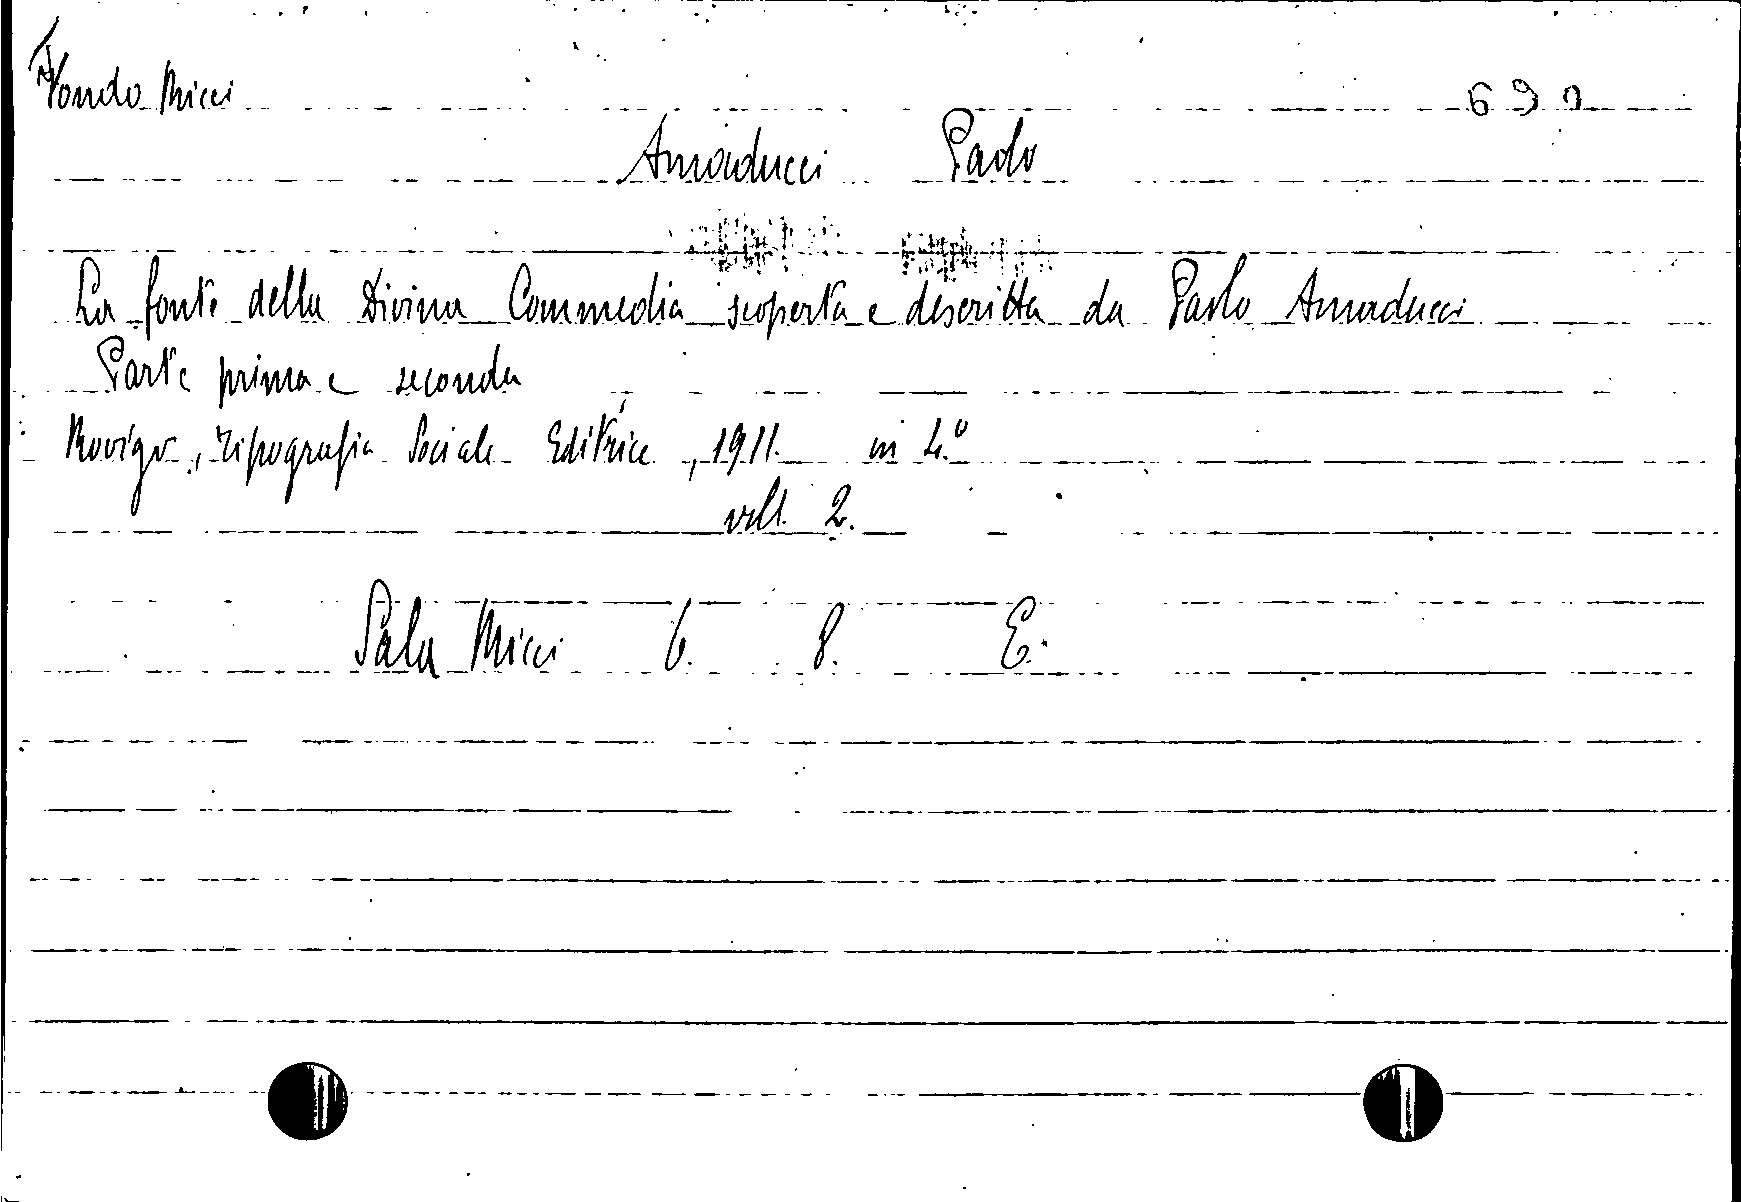 Fondo Ricci
690
Amaducci Paolo
La fonte della Divina Commedia scoperta e descritta da Paolo Amaducci
Parte prima e seconda
Rovigo, Tipografia Sociale Editrice, 1911. in 4.º
voll. 2.
Sala Ricci 6. 8. E.